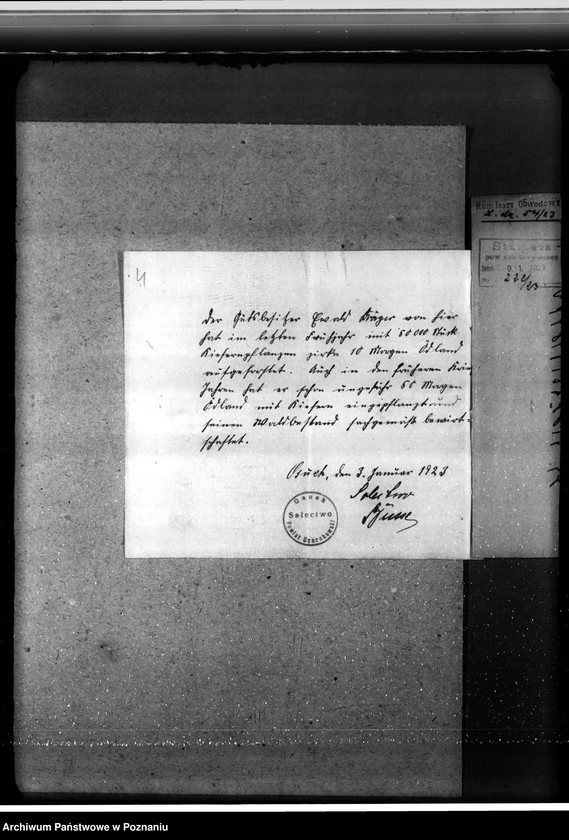 4
Der Gutsbesitzer Ewald Krüger von hier
hat im letzten Frühjahr mit 50 000 Stück
Kiefernpflanzen zirka 10 Morgen Ödland
aufgeforstet. Auch in den früheren
Jahren hat er schon ungefähr 60 Morgen
Ödland mit Kiefern eingepflanzt und
seinen Waldbestand sachgemäß bewirt-
schaftet.
den 3. Januar 1923
Sołectwo
Busse
Sołectwo
Powiat Czarnkowski
Komisarz Obwodowy
23
Archiwum Państwowe w Poznaniu